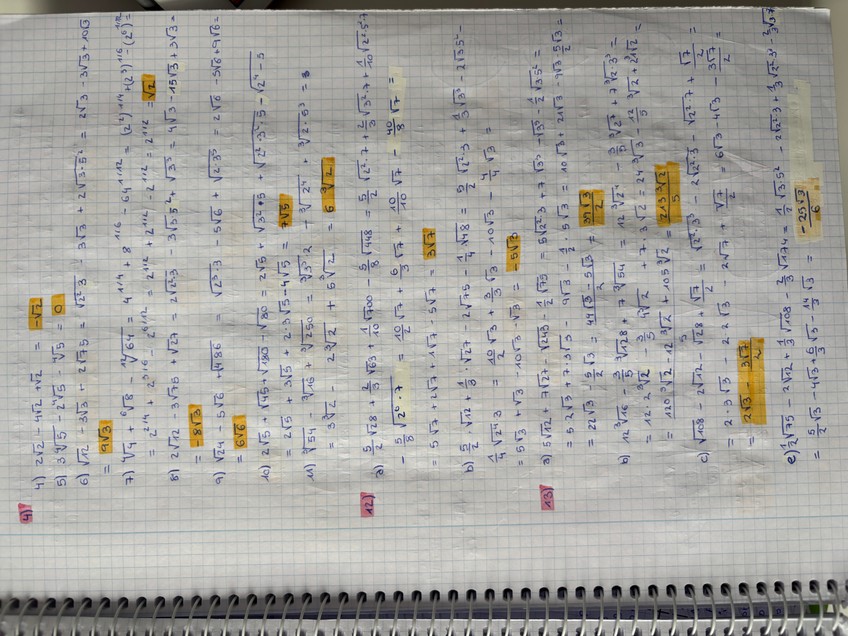 4)
4) 2√2 - 4√2 + √2 = -√2
5) 3 ⁴√5 - 2 ⁴√5 - ⁴√5 = 0
6) √12 - 3√3 + 2√75 = √2²·3 - 3√3 + 2√3·5² = 2√3 - 3√3 + 10√3
= 9√3
7) ⁴√4 + ⁶√8 - ¹²√64 = 4^1/4 + 8^1/6 - 64^1/12 = (2²)^1/4 + (2³)^1/6 - (2⁶)^1/12 =
= 2^2/4 + 2^3/6 - 2^6/12 = 2^1/2 + 2^1/2 - 2^1/2 = 2^1/2 = √2
8) 2√12 - 3√75 + √27 = 2√2²·3 - 3√3·5² + √3³ = 4√3 - 15√3 + 3√3 =
= -8√3
9) √24 - 5√6 + √486 = √2³·3 - 5√6 + √2·3⁵ = 2√6 - 5√6 + 9√6 =
= 6√6
10) 2√5 + √45 + √180 - √80 = 2√5 + √3²·5 + √2²·3²·5 - √2⁴·5
= 2√5 + 3√5 + 2·3√5 - 4√5 = 7√5
11) ³√54 - ³√16 + ³√250 = ³√3³·2 - ³√2⁴ + ³√2·5³ =
= 3 ³√2 - 2 ³√2 + 5 ³√2 = 6 ³√2
12)
a) 5/2 √28 + 2/3 √63 + 1/10 √700 - 5/8 √448 = 5/2 √2²·7 + 2/3 √3²·7 + 1/10 √2²·5²·7
- 5/8 √2⁶·7 = 10/2 √7 + 6/3 √7 + 10/10 √7 - 40/8 √7 =
= 5√7 + 2√7 + 1√7 - 5√7 = 3√7
b) 5/2 √12 + 1/3 √27 - 2√75 - 1/4 √48 = 5/2 √2²·3 + 1/3 √3³ - 2√3·5² -
1/4 √2⁴·3 = 10/2 √3 + 3/3 √3 - 10√3 - 4/4 √3 =
= 5√3 + √3 - 10√3 - √3 = -5√3
13)
a) 5√12 + 7√27 - √243 - 1/2 √75 = 5√2²·3 + 7√3³ - √3⁵ - 1/2 √3·5² =
= 5·2√3 + 7·3√3 - 9√3 - 1/2·5√3 = 10√3 + 21√3 - 9√3 - 5/2 √3 =
= 22√3 - 5/2 √3 = 44√3 - 5√3 / 2 = 39√3/2
b) 12 ³√16 - 3/5 ³√128 + 7 ³√54 = 12 ³√2⁴ - 3/5 ³√2⁷ + 7 ³√2·3³ =
= 12·2 ³√2 - 3/5 4 ³√2 + 7·3 ³√2 = 24 ³√2 - 12/5 ³√2 + 21 ³√2 =
= 120 ³√2 - 12 ³√2 + 105 ³√2 / 5 = 213 ³√2 / 5
c) √108 - 2√12 - √28 + √7/2 = √2²·3³ - 2√2²·3 - √2²·7 + √7/2 =
= 2·3√3 - 2·2√3 - 2√7 + √7/2 = 6√3 - 4√3 - 3√7/2 =
= 2√3 - 3√7/2
e) 1/2 √75 - 2√12 + 1/3 √108 - 2/3 √174 = 1/2 √3·5² - 2√2²·3 + 1/3 √2²·3³ - 2/3 √3·7²
= 5/2 √3 - 4√3 + 6/3 √3 - 14/3 √3 = -25√3/6